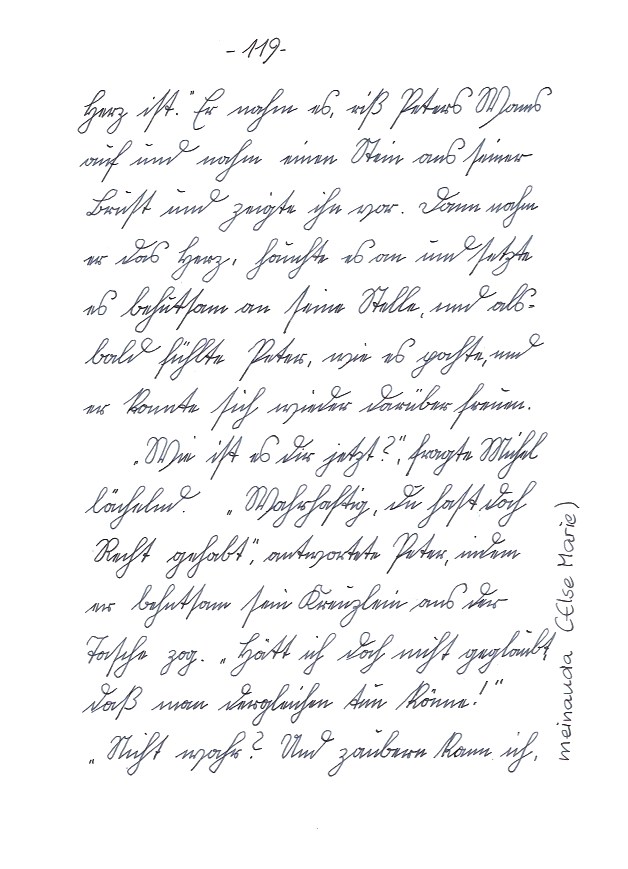 - 119 -
Herz ist." Er nahm es, riß Peters Wams
auf und nahm einen Stein aus seiner
Brust und zeigte ihn vor. Dann nahm
er das Herz, hauchte es an und setzte
es behutsam an seine Stelle, und als-
bald fühlte Peter, wie es pochte, und
er konnte sich wieder darüber freuen.
„Wie ist es dir jetzt?", fragte Michel
lächelnd. „Wahrhaftig, du hast doch
Recht gehabt", antwortete Peter, indem
er behutsam sein Kreuzlein aus der
Tasche zog. „Hätt ich doch nicht geglaubt,
daß man dergleichen tun könne!"
„Nicht wahr? Und zaubern kann ich,
meinauda (Else Marie)